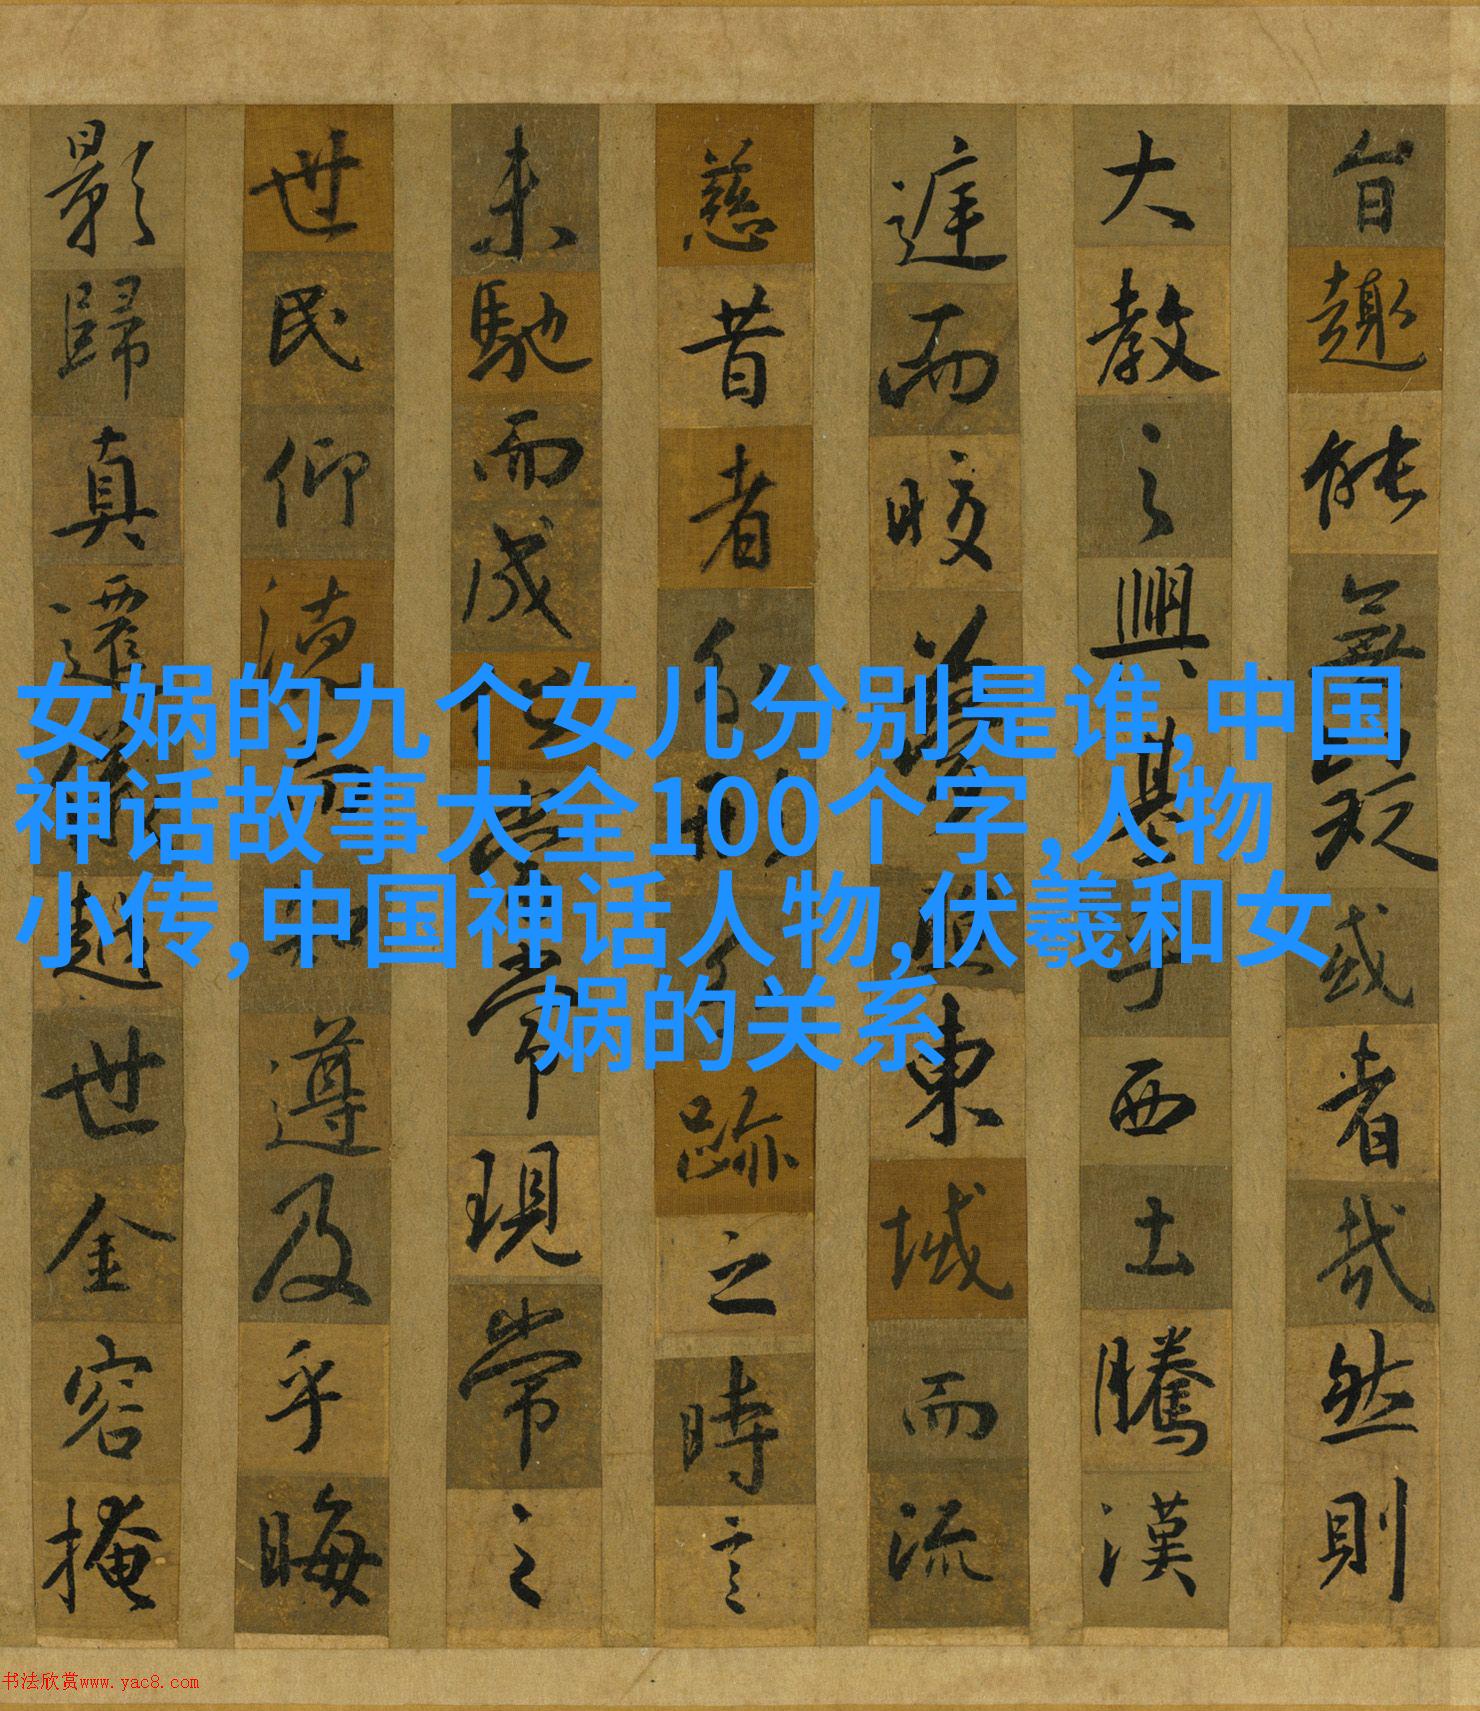 旨趣能無疑或者哉然則
大教之興基乎西土騰漢
庭而皎夢照東域而流
慈昔者分形分跡之時言
未馳而成化當常現常之
世民仰德而知遵及乎晦
影歸真遷儀越世金容掩
女娲的九个女儿分别是谁,中国
神话故事大全100个字,人物
小传,中国神话人物,伏羲和女
娲的关系
书法欣赏www.yac8.com